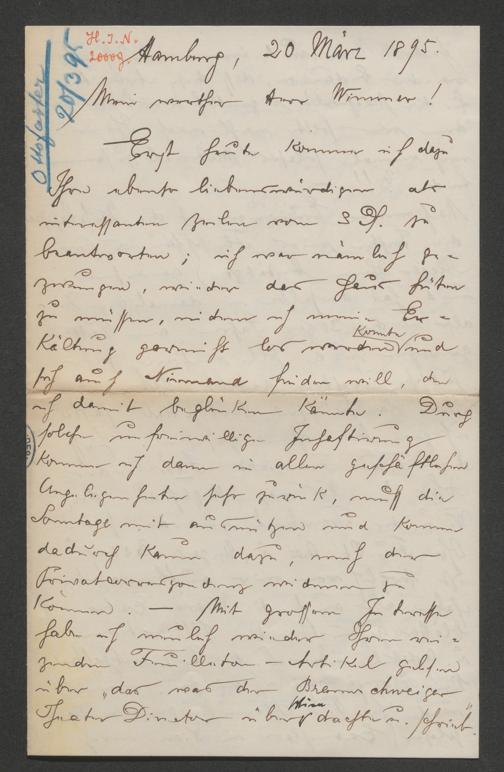 H. I. N.
20009
Otto Jaster
20/3 95
Hamburg, 20 März 1895.
Mein werther Herr Wimmer!
Erst heute komme ich dazu
Ihre ebenso liebenswürdigen als
interessanten Zeilen vom 3 Ds. zu
beantworten; ich war nämlich ge-
zwungen, wieder das Haus hüten
zu müssen, indem ich meine Er-
kältung garnicht los werden konnte und
sich auch Niemand finden will, den
ich damit beglücken könnte. Durch
solche unfreiwillige Inhaftirung
komme ich dann in allen geschäftlichen
Angelegenheiten sehr zurück, muß die
Sonntage mit ausnützen und komme
dadurch kaum dazu, mich der
Privatcorrespondenz widmen zu
können. — Mit grossem Interesse
habe ich neulich wieder Ihren rei-
zenden Feuilleton-Artikel gelesen
über „das was der Braunschweiger
Theater Director über Wien dachte u. schrieb."